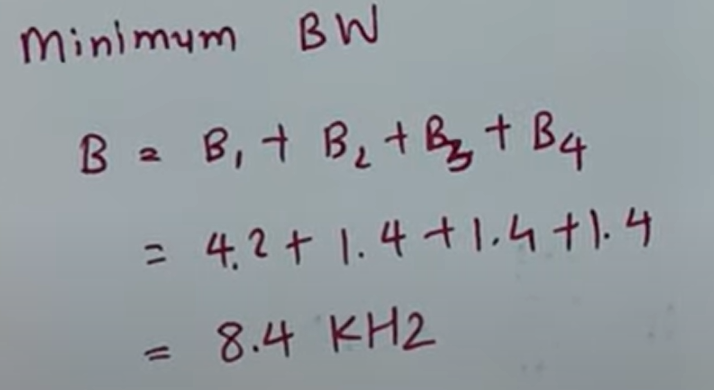 Minimum BW
B = B₁ + B₂ + B₃ + B₄
= 4.2 + 1.4 + 1.4 + 1.4
= 8.4 KHz